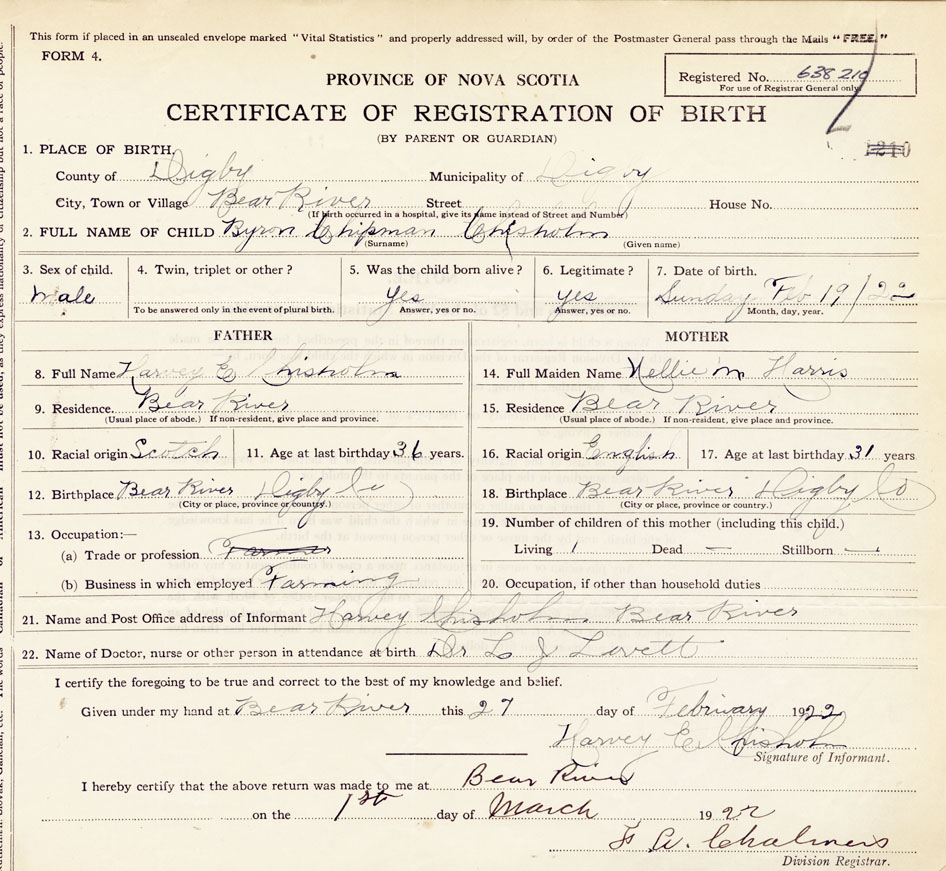 This form if placed in an unsealed envelope marked "Vital Statistics" and properly addressed will, by order of the Postmaster General pass through the Mails "FREE."
FORM 4.
PROVINCE OF NOVA SCOTIA
Registered No. 638210
For use of Registrar General only
CERTIFICATE OF REGISTRATION OF BIRTH
(BY PARENT OR GUARDIAN)
1210
1. PLACE OF BIRTH.
County of Digby Municipality of Digby
City, Town or Village Bear River Street House No.
(If birth occurred in a hospital, give its name instead of Street and Number)
2. FULL NAME OF CHILD Byron Chipman Chisholm
(Surname) (Given name)
3. Sex of child. 4. Twin, triplet or other? 5. Was the child born alive? 6. Legitimate? 7. Date of birth.
Male Yes yes Sunday Feb 19/22
To be answered only in the event of plural birth. Answer, yes or no. Answer, yes or no. Month, day, year.
FATHER MOTHER
8. Full Name Harvey E Chisholm 14. Full Maiden Name Nellie M Harris
9. Residence. Bear River 15. Residence Bear River
(Usual place of abode.) If non-resident, give place and province. (Usual place of abode.) If non-resident, give place and province.
10. Racial origin Scotch 11. Age at last birthday 36 years. 16. Racial origin English 17. Age at last birthday 31 years
12. Birthplace Bear River Digby Co 18. Birthplace Bear River Digby Co
(City or place, province or country.) (City or place, province or country.)
13. Occupation:— 19. Number of children of this mother (including this child.)
(a) Trade or profession Farmer Living 1 Dead — Stillborn —
(b) Business in which employed Farming 20. Occupation, if other than household duties
21. Name and Post Office address of Informant Harvey Chisholm Bear River
22. Name of Doctor, nurse or other person in attendance at birth Dr L J Lovett
I certify the foregoing to be true and correct to the best of my knowledge and belief.
Given under my hand at Bear River this 27 day of February 1922
Harvey E Chisholm
Signature of Informant.
I hereby certify that the above return was made to me at Bear River
on the 1st day of March 1922
F. W. Chalmers
Division Registrar.